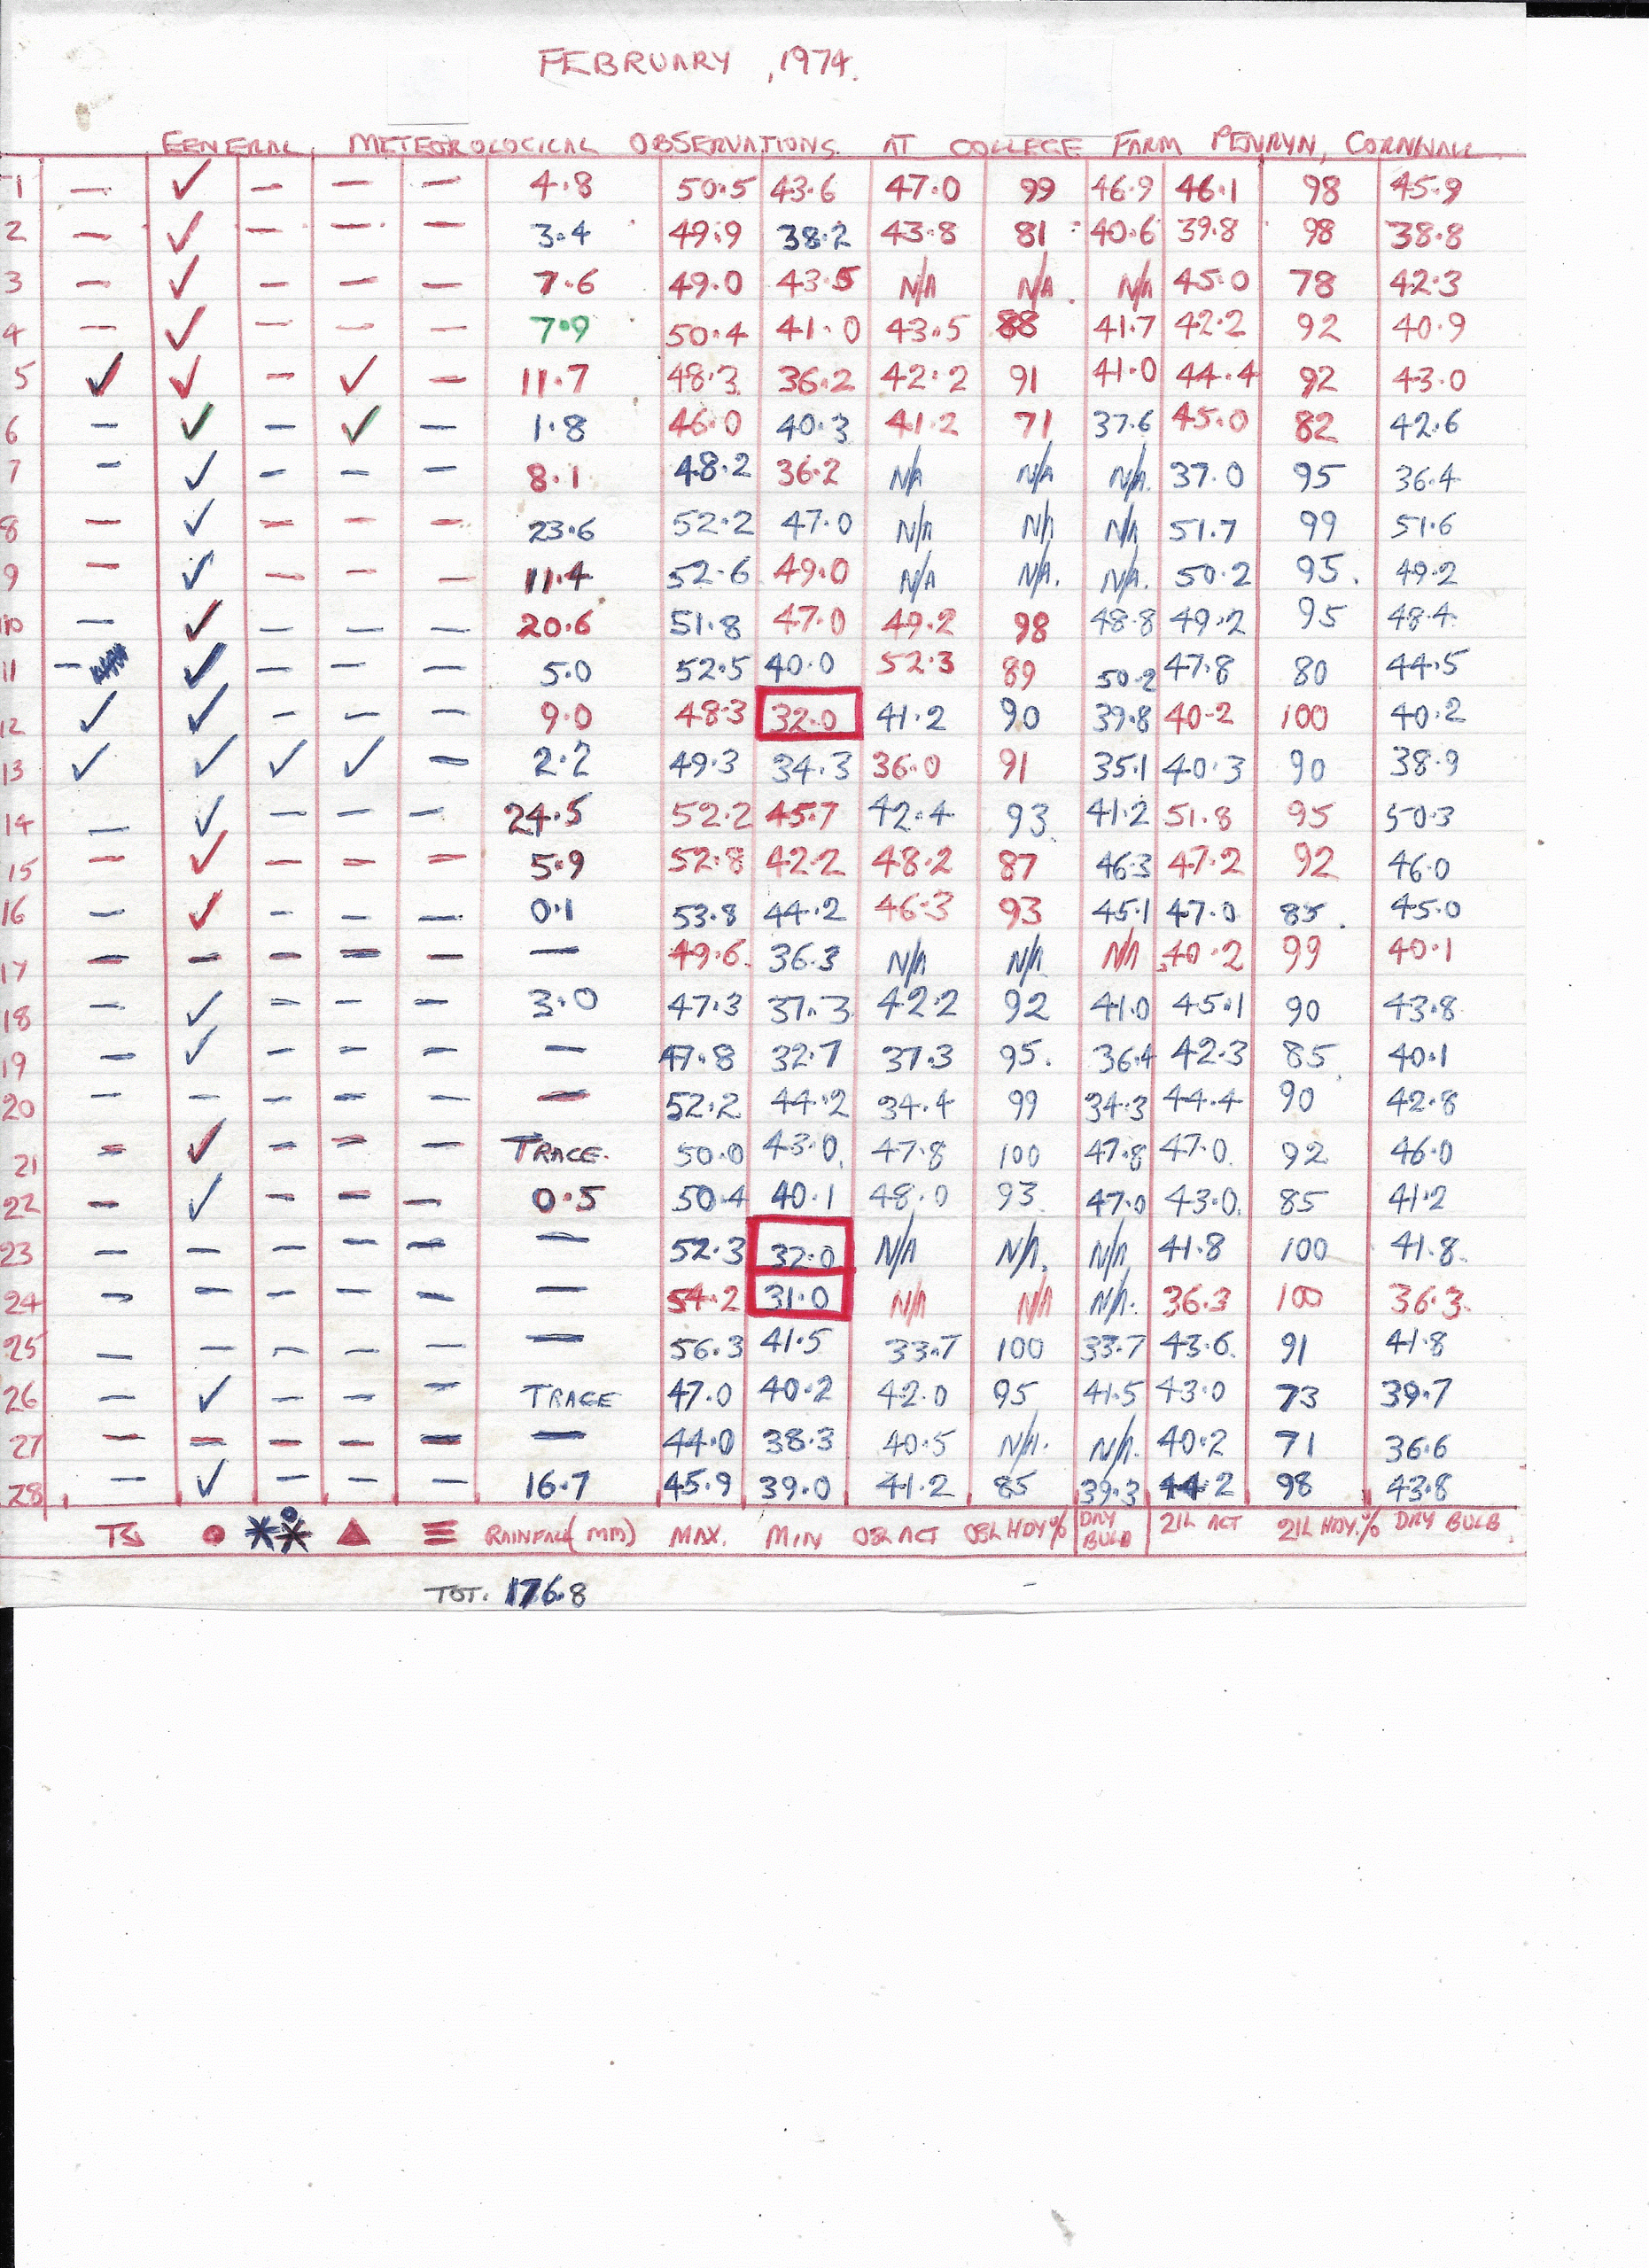 FEBRUARY, 1974.
GENERAL METEOROLOGICAL OBSERVATIONS AT COLLEGE FARM PENRYN, CORNWALL
1 — ✓ — — — 4.8 50.5 43.6 47.0 99 46.9 46.1 98 45.9
2 — ✓ — — — 3.4 49.9 38.2 43.8 81 40.6 39.8 98 38.8
3 — ✓ — — — 7.6 49.0 43.5 N/A N/A N/A 45.0 78 42.3
4 — ✓ — — — 7.9 50.4 41.0 43.5 88 41.7 42.2 92 40.9
5 ✓ ✓ — ✓ — 11.7 48.3 36.2 42.2 91 41.0 44.4 92 43.0
6 — ✓ — ✓ — 1.8 46.0 40.3 41.2 71 37.6 45.0 82 42.6
7 — ✓ — — — 8.1 48.2 36.2 N/A N/A N/A 37.0 95 36.4
8 — ✓ — — — 23.6 52.2 47.0 N/A N/A N/A 51.7 99 51.6
9 — ✓ — — — 11.4 52.6 49.0 N/A N/A. N/A. 50.2 95. 49.2
10 — ✓ — — — 20.6 51.8 47.0 49.2 98 48.8 49.2 95 48.4
11 — ✓ — — — 5.0 52.5 40.0 52.3 89 50.2 47.8 80 44.5
12 ✓ ✓ — — — 9.0 48.3 32.0 41.2 90 39.8 40.2 100 40.2
13 ✓ ✓ ✓ ✓ — 2.2 49.3 34.3 36.0 91 35.1 40.3 90 38.9
14 — ✓ — — — 24.5 52.2 45.7 42.4 93 41.2 51.8 95 50.3
15 — ✓ — — — 5.9 52.8 42.2 48.2 87 46.3 47.2 92 46.0
16 — ✓ — — — 0.1 53.8 44.2 46.3 93 45.1 47.0 85 45.0
17 — — — — — — 49.6 36.3 N/A N/A N/A 40.2 99 40.1
18 — ✓ — — — 3.0 47.3 37.3 42.2 92 41.0 45.1 90 43.8
19 — ✓ — — — — 47.8 32.7 37.3 95. 36.4 42.3 85 40.1
20 — — — — — — 52.2 44.2 34.4 99 34.3 44.4 90 42.8
21 — ✓ — — — TRACE. 50.0 43.0 47.8 100 47.8 47.0 92 46.0
22 — ✓ — — — 0.5 50.4 40.1 48.0 93 47.0 43.0 85 41.2
23 — — — — — — 52.3 32.0 N/A N/A. N/A 41.8 100 41.8
24 — — — — — — 54.2 31.0 N/A N/A N/A. 36.3 100 36.3
25 — — — — — — 56.3 41.5 33.7 100 33.7 43.6 91 41.8
26 — ✓ — — — TRACE 47.0 40.2 42.0 95 41.5 43.0 73 39.7
27 — — — — — — 44.0 38.3 40.5 N/A. N/A. 40.2 71 36.6
28 — ✓ — — — 16.7 45.9 39.0 41.2 85 39.3 44.2 98 43.8
TS ● ** ▲ ≡ RAINFALL (MM) MAX. MIN 08h ACT 08h HDY% DRY BULB 21h ACT 21h HDY.% DRY BULB
TOT. 176.8